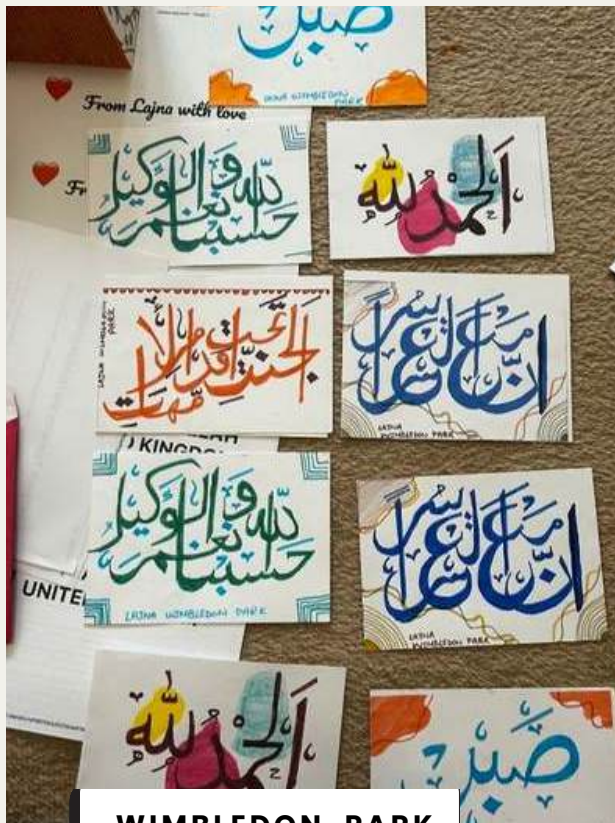 صبر
LAJNA WIMBLEDON PARK
From Lajna with love
Fr
حسبنا الله و نعم الوكيل
الحمد لله
LAJNA WIMBLEDON PARK
الجنة تحت اقدام الأمهات
ان مع العسر يسرا
LAJNA
WIMBLEDON PARK
KINGDO
حسبنا الله و نعم الوكيل
LAJNA WIMBLEDON PARK
ان مع العسر يسرا
LAJNA
WIMBLEDON PARK
UNITE
الحمد لله
صبر
WIMBLEDON PARK